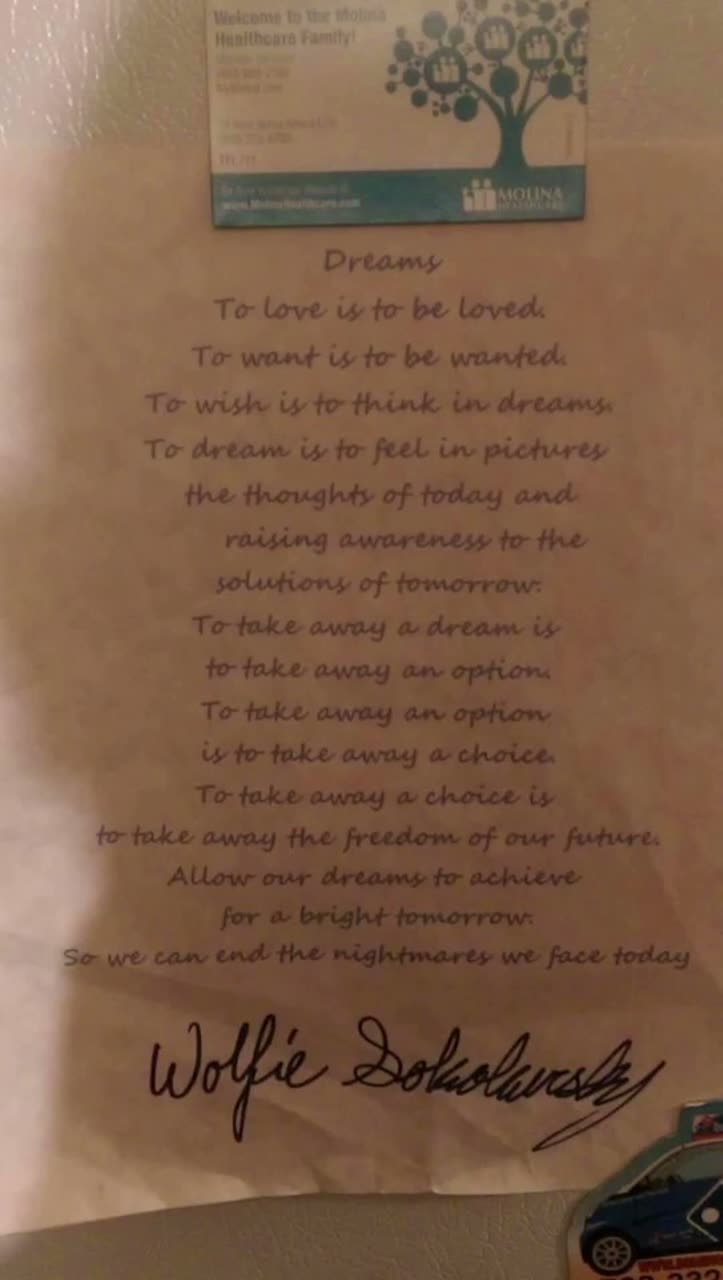 Welcome to the Molina
Healthcare Family!
www.MolinaHealthcare.com
MOLINA
HEALTHCARE
Dreams
To love is to be loved.
To want is to be wanted.
To wish is to think in dreams.
To dream is to feel in pictures
the thoughts of today and
raising awareness to the
solutions of tomorrow.
To take away a dream is
to take away an option.
To take away an option
is to take away a choice.
To take away a choice is
to take away the freedom of our future.
Allow our dreams to achieve
for a bright tomorrow.
So we can end the nightmares we face today
Wolfie